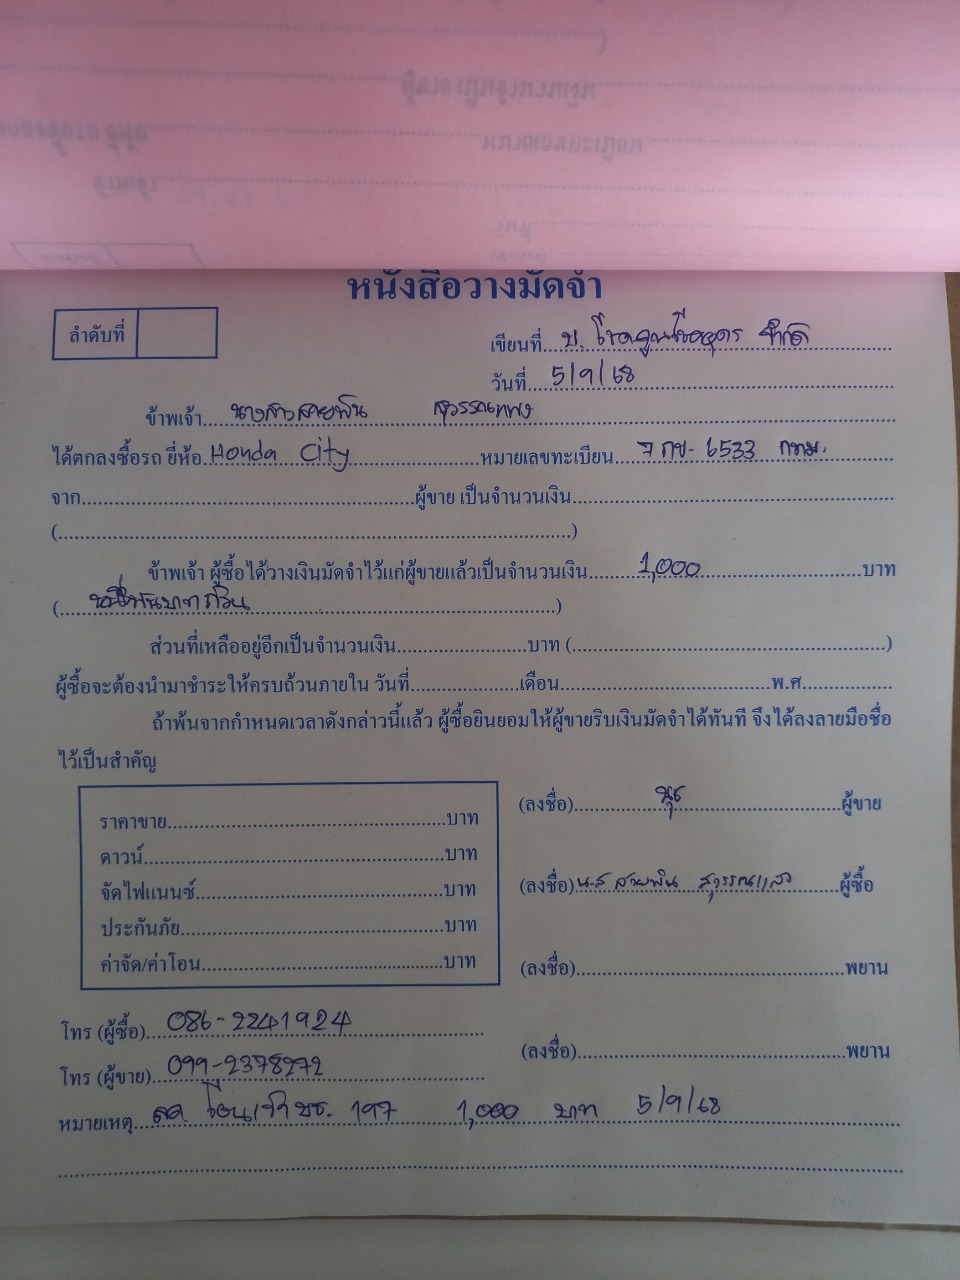 หนังสือวางมัดจำ
ลำดับที่
เขียนที่ บ. โชคคูณโชคอุดร จำกัด
วันที่ 5/9/68
ข้าพเจ้า นางสาวสายพิน
ได้ตกลงซื้อรถ ยี่ห้อ Honda City หมายเลขทะเบียน 7 กข- 6533 กทม.
จาก ผู้ขาย เป็นจำนวนเงิน
( )
ข้าพเจ้า ผู้ซื้อได้วางเงินมัดจำไว้แก่ผู้ขายแล้วเป็นจำนวนเงิน 1,000 บาท
( หนึ่งพันบาทถ้วน )
ส่วนที่เหลืออยู่อีกเป็นจำนวนเงิน บาท ( )
ผู้ซื้อจะต้องนำมาชำระให้ครบถ้วนภายใน วันที่ เดือน พ.ศ.
ถ้าพ้นจากกำหนดเวลาดังกล่าวนี้แล้ว ผู้ซื้อยินยอมให้ผู้ขายริบเงินมัดจำได้ทันที จึงได้ลงลายมือชื่อ
ไว้เป็นสำคัญ
ราคาขาย บาท
ดาวน์ บาท
จัดไฟแนนซ์ บาท
ประกันภัย บาท
ค่าจัด/ค่าโอน บาท
(ลงชื่อ) นุช ผู้ขาย
(ลงชื่อ) น.ส สายพิน ผู้ซื้อ
(ลงชื่อ) พยาน
(ลงชื่อ) พยาน
โทร (ผู้ซื้อ) 086-2241924
โทร (ผู้ขาย) 099-2378272
หมายเหตุ ลค. โอนเข้า บช. 197 1,000 บาท 5/9/68